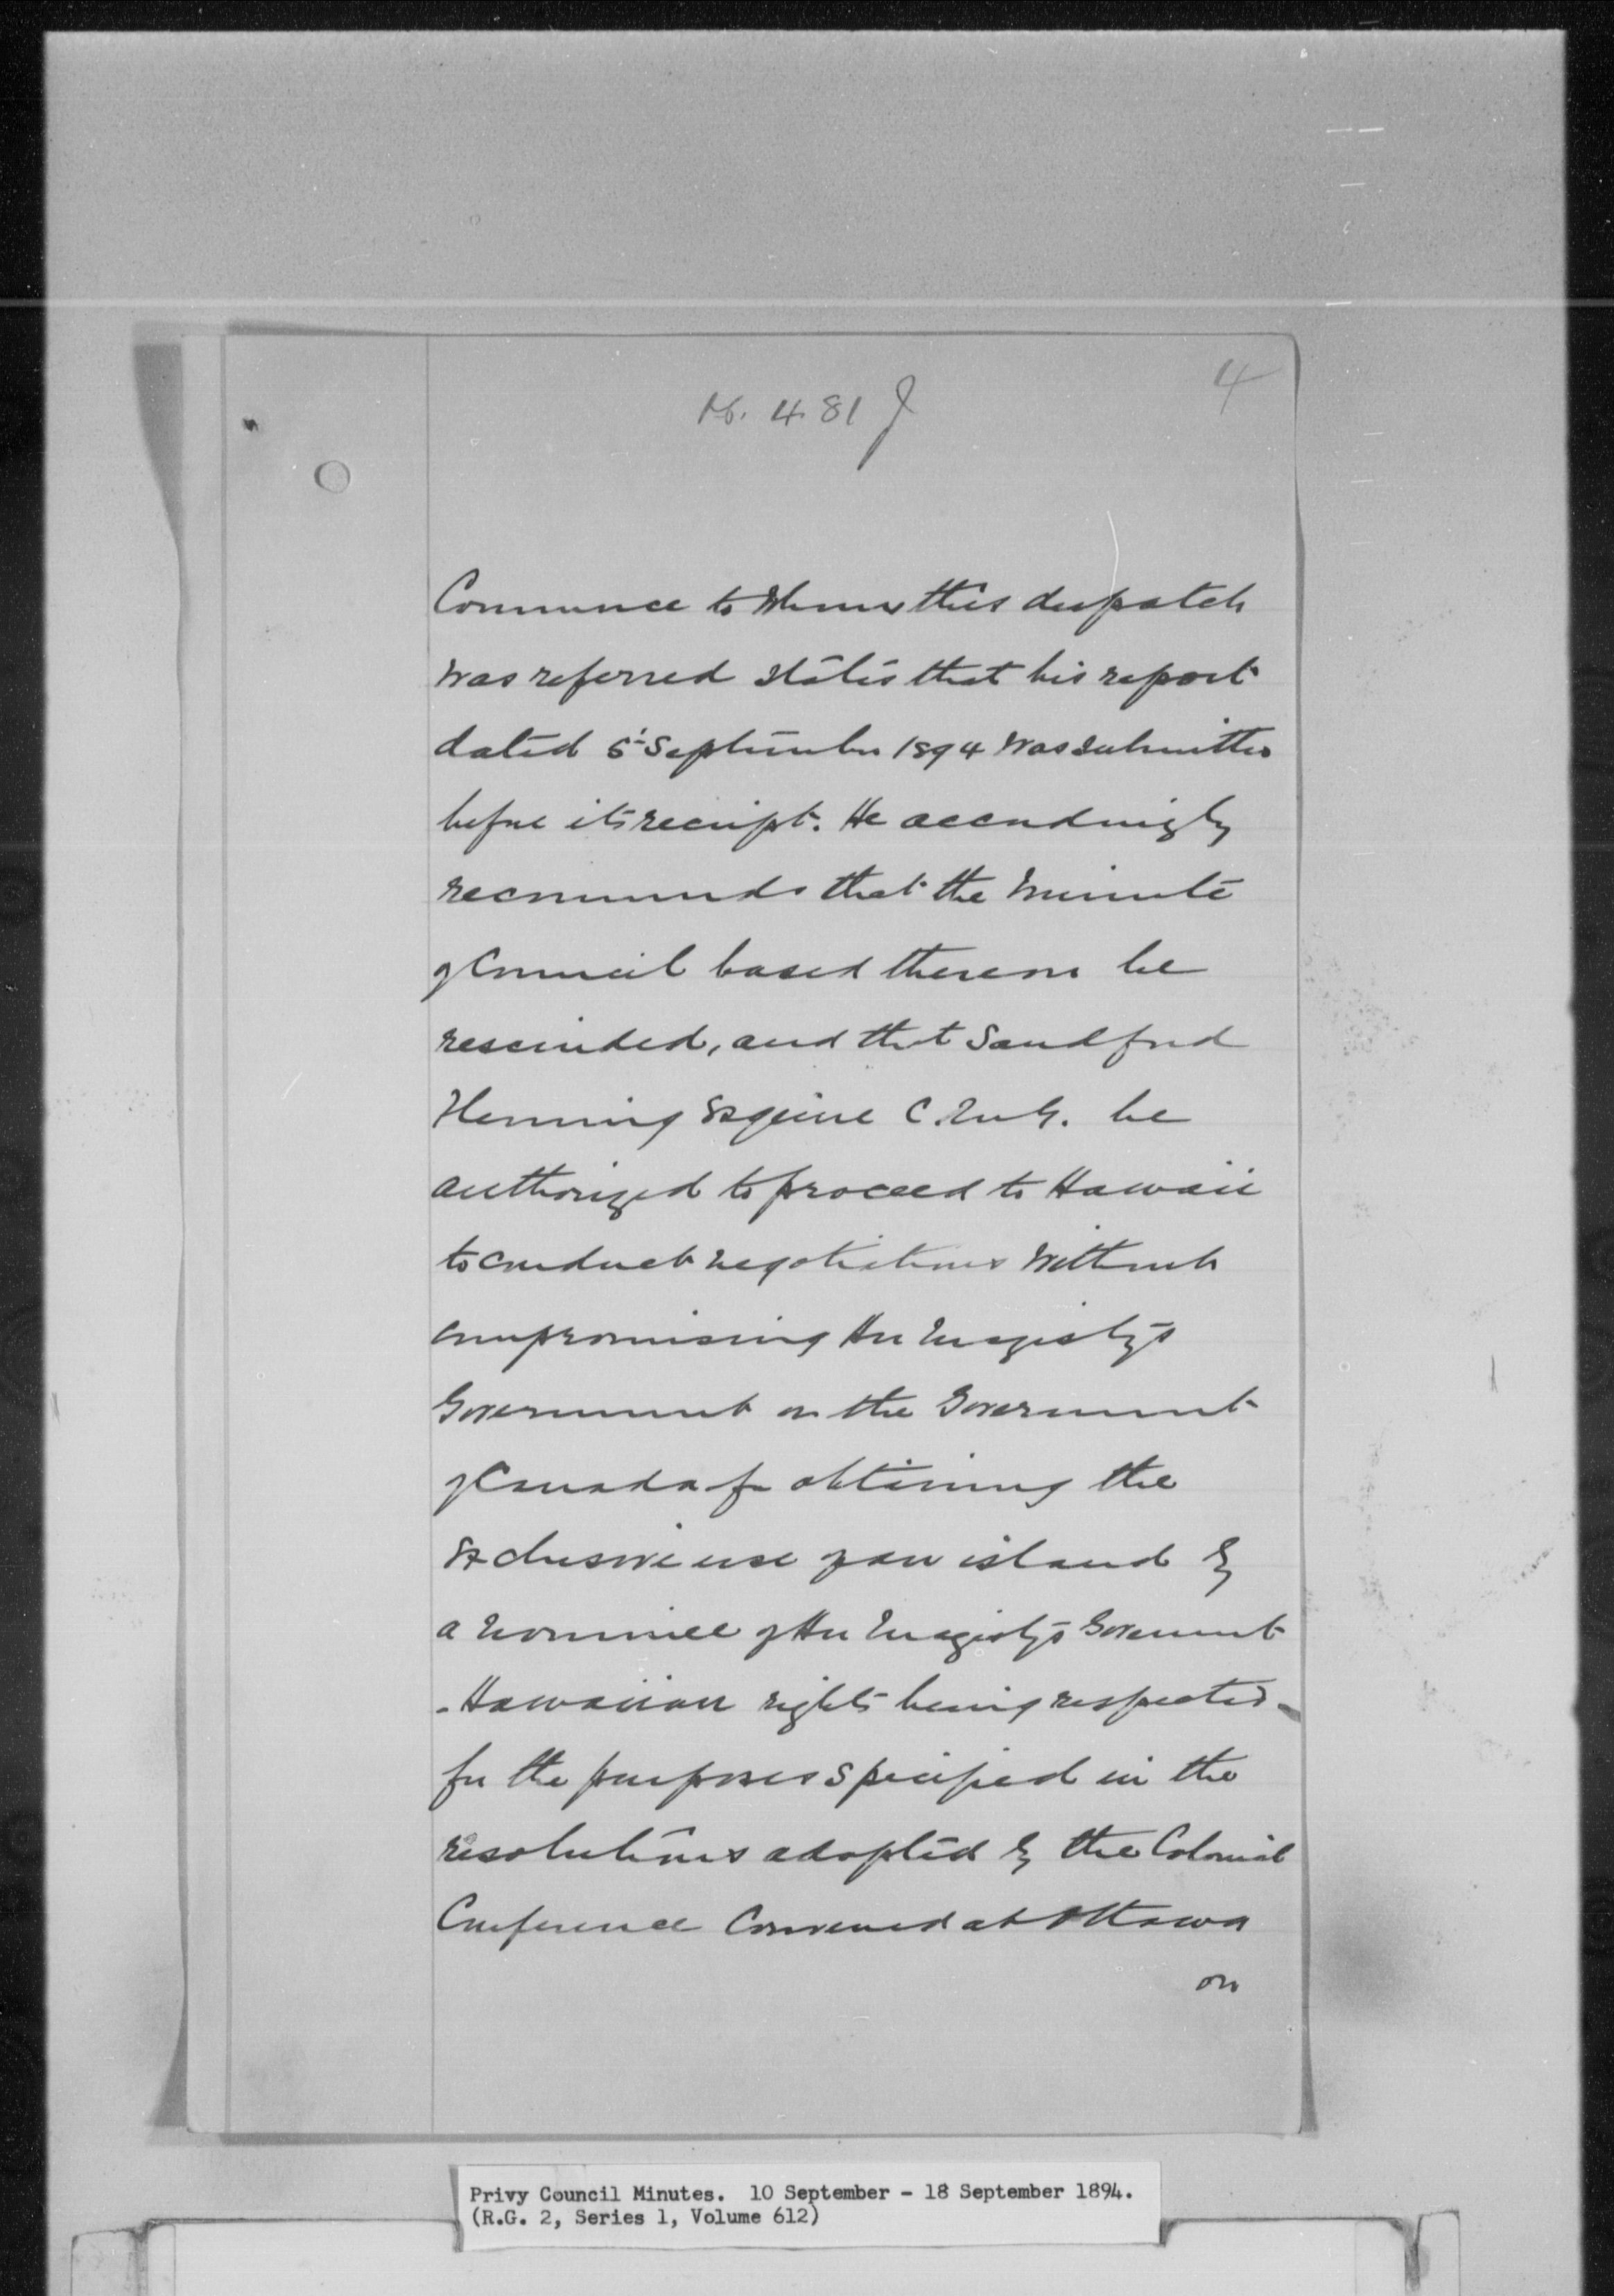 4
No. 481 J
Commerce to whom this despatch
was referred states that his report
dated 5' September 1894 was submitted
before its receipt. He accordingly
recommends that the Minute
of Council based thereon be
rescinded, and that Sandford
Fleming Esquire C.M.G. be
authorized to proceed to Hawaii
to conduct negotiations without
compromising Her Majesty's
Government or the Government
of Canada for obtaining the
exclusive use of an island by
a nominee of Her Majesty's Government
- Hawaiian rights being respected -
for the purposes specified in the
resolutions adopted by the Colonial
Conference convened at Ottawa
on
Privy Council Minutes. 10 September - 18 September 1894.
(R.G. 2, Series 1, Volume 612)